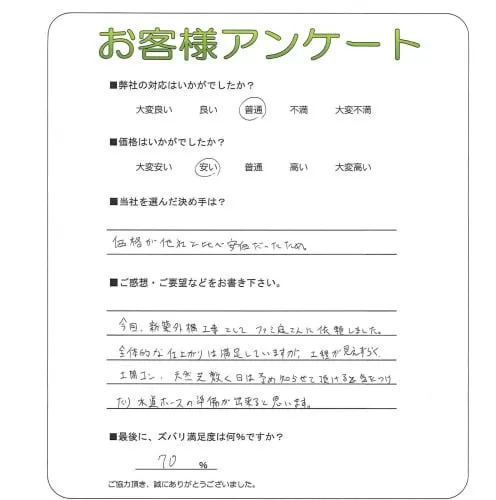 お客様アンケート
■弊社の対応はいかがでしたか？
大変良い 良い 普通 不満 大変不満
■価格はいかがでしたか？
大変安い 安い 普通 高い 大変高い
■当社を選んだ決め手は？
価格が他社と比べ安価だったため。
■ご感想・ご要望などをお書き下さい。
今回、新築外構工事として ファミ庭さんに依頼しました。
全体的な仕上がりは満足していますが、工程が見えずらく、
土間コン、天然芝敷く日は予め知らせて頂けると気をつけ
たり水道ホースの準備が出来ると思います。
■最後に、ズバリ満足度は何％ですか？
70 ％
ご協力頂き、誠にありがとうございました。